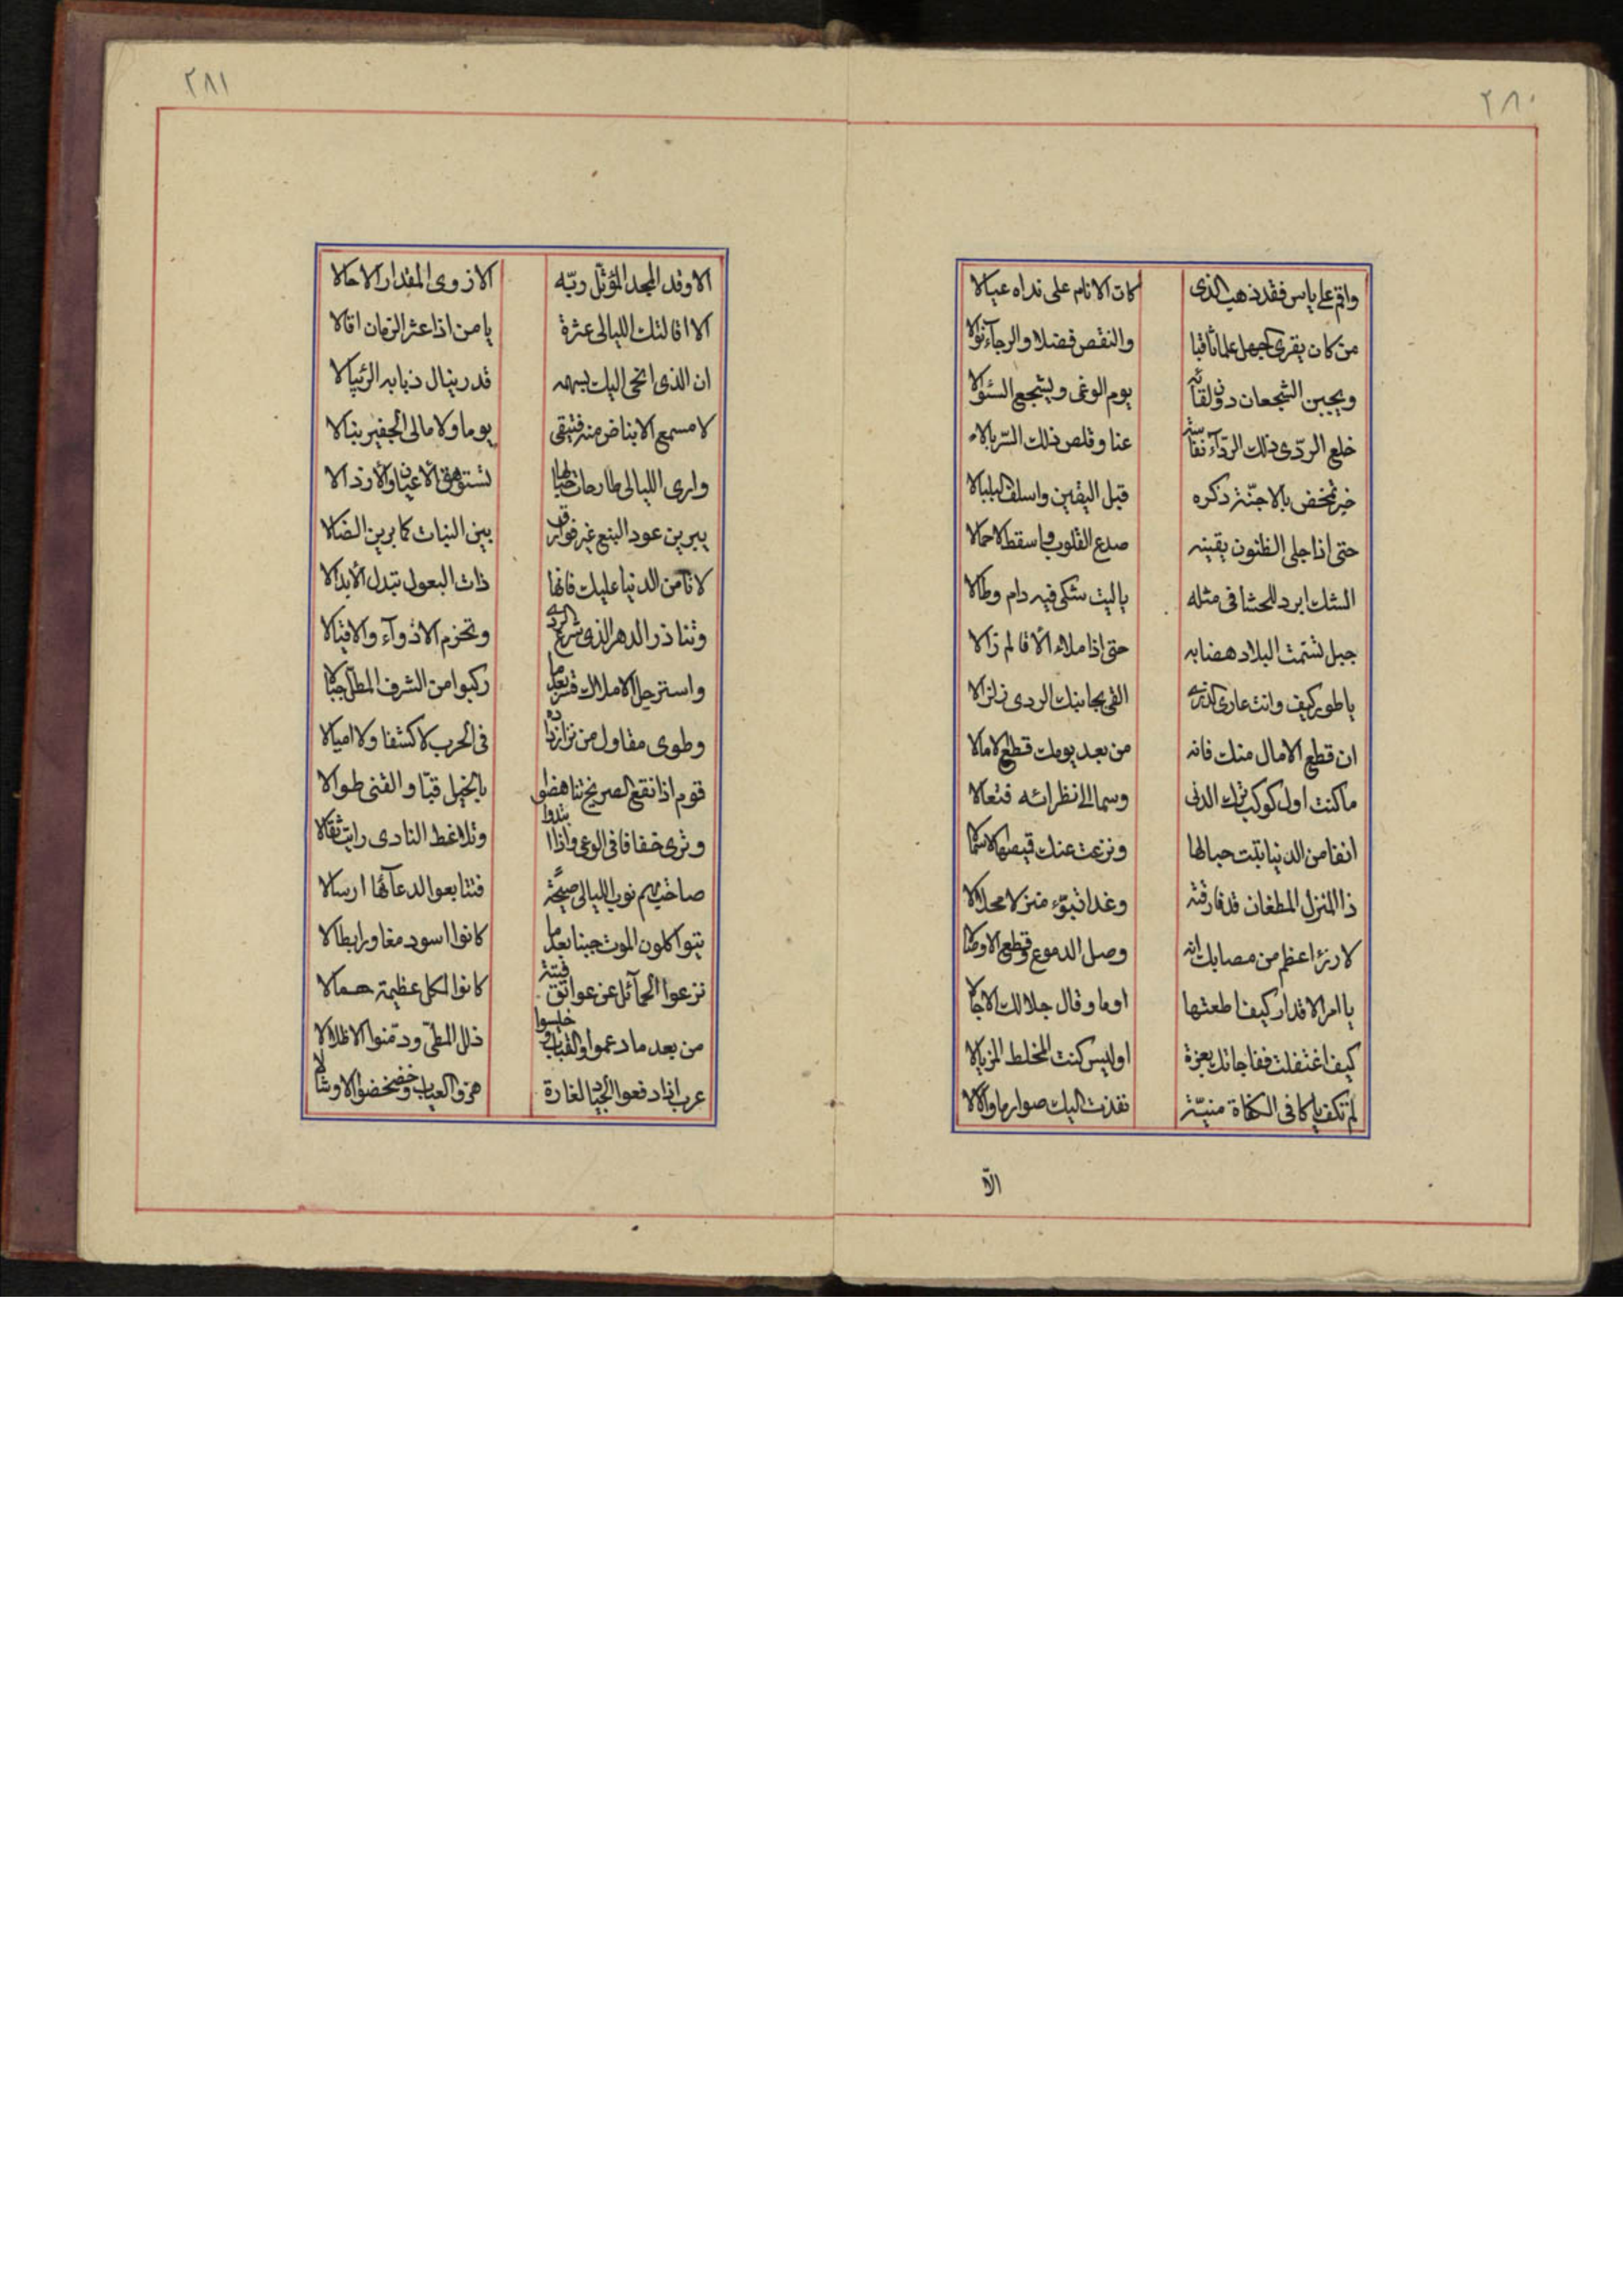 ٢٨٠
واقم على ياس فقد ذهب الذى كان الانام على نداه عيالا
من كان يقرى الجهل علما ثاقبا والنقص فضلا والرجاء نوالا
ويجبن الشجعان دون لقائه يوم الوغى ويشجع السئوالا
خلع الردّى ذلك الردآء نفاسة عنا وقلص ذلك السّربالا
خبر تمخض بالاجنّة ذكره قبل اليقين واسلف البلبالا
حتى اذا جلى الظنون يقينه صدع القلوب واسقط الاحمالا
الشك ابرد للحشا فى مثله ياليت شكى فيه دام وطالا
جبل تسنمت البلاد هضابه حتى اذا ملاء الأقالم زالا
يا طود كيف وانت عارى الذرى القى بجانبك الردى زلزالا
ان قطع الامال منك فانه من بعد يومك قطع الامالا
ما كنت اول كوكب ترك الدنى وسما الى نظرائه فتعالا
انفا من الدنيا بتت حبالها ونزعت عنك قميصها الاسمالا
ذا المنزل المظعان قد فارقته وغدا تبوّء منزلا محلالا
لا رزء اعظم من مصابك انه وصل الدموع وقطع الاوصالا
يا امر الاقدار كيف اطعتها اوما وقال جلالك الاجالا
كيف اغتفلت ففاجاتك بعزة اوليس كنت المخلط المزيالا
لم تكف يا كافى الكفاة منيّة نفذت اليك صوارما والالا
الّا
٢٨١
الا وقد المجد المؤثّل ربّه الا زوى المقدار الا حالا
الا اقالتك الليالى عثرة يا من اذا عثر الزمان اقالا
ان الذى انحى اليك بسهمه قدر ينال ذبابه الرئبالا
لا مسمع الانباض منه فتيقى يوما ولا مالى الجفير نبالا
وارى الليالى طارحات حبالها تستوهق الأعيان والأرذالا
يبرين عود النبع غير فوارق بين النبات كما برين الضالا
لا تامن الدنيا عليك فانها ذات البعول تبدل الأبدالا
وتناذر الدهر الذى شرع الردى وتخزم الاذوآء والاقيالا
واستنزل الاملاك قسر بعدما ركبوا من الشرف المطل جبالا
وطوى مقاول من نزار ذاده فى الحرب لا كشفا ولا اميالا
قوم اذا نقع الصريخ تناهضوا بالخيل قبّا والقنى طوالا
وترى خفافا فى الوعى واذا انتدوا وتلاغط النادى رايت ثقالا
صاحت بهم نوب الليالى صيحة فتتابعوا لدعآئها ارسالا
يتواكلون الموت جبنا بعدما كانوا اسود مغاور ابطالا
نزعوا الحمآئل عن عواتق فتية كانوا لكل عظيمة حمالا
من بعد ما دعموا القباب وخيسوا ذلل المطىّ ودمّنوا الاظلالا
عرب اذا دفعوا الجياد لغارة هزوا العياب وخضخضوا الاوشالا